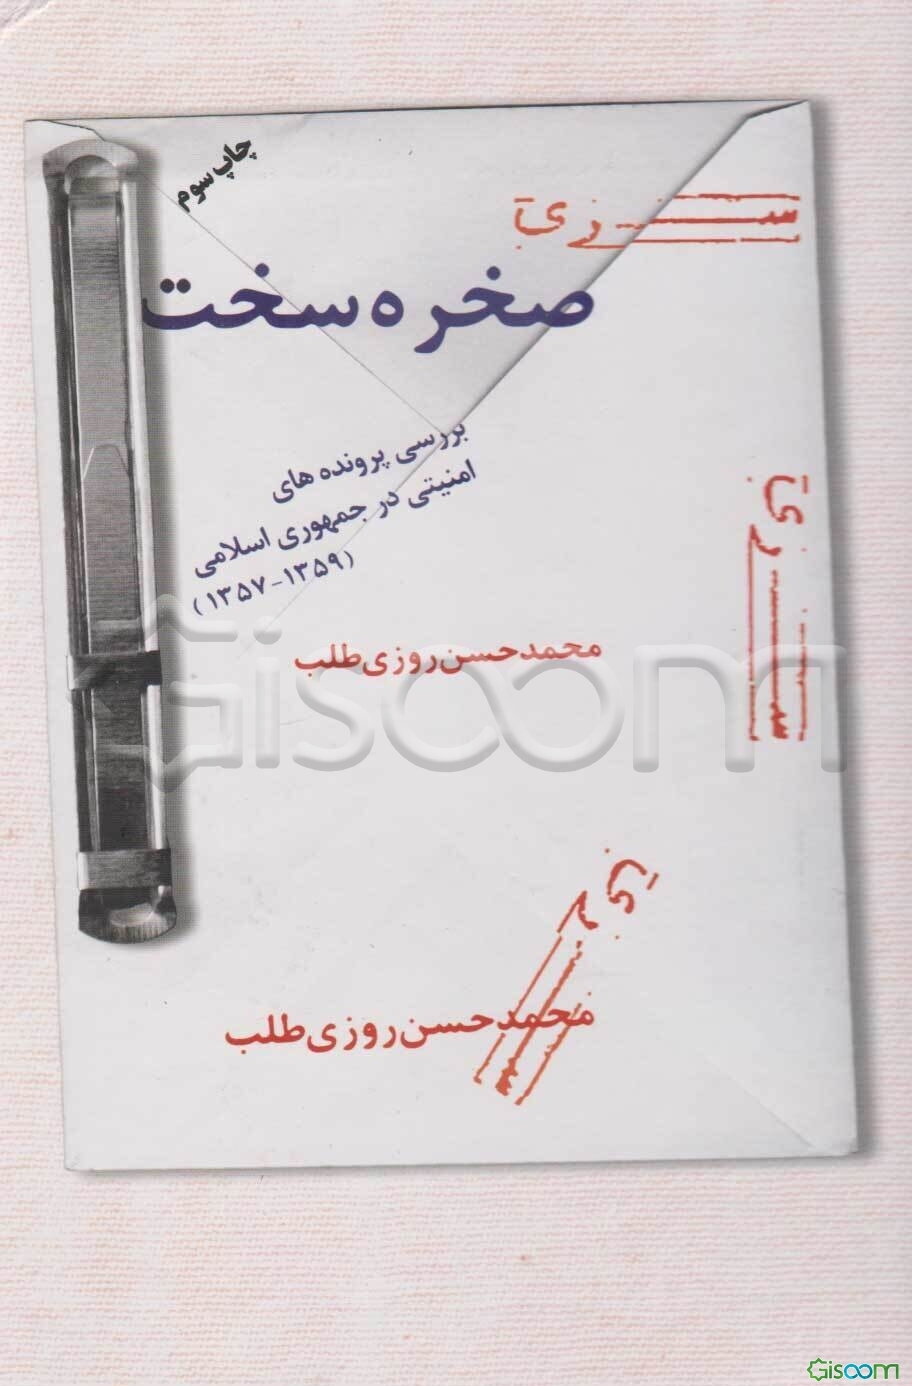 چاپ سوم
سری
صخره سخت
بررسی پرونده های
امنیتی در جمهوری اسلامی
(۱۳۵۷-۱۳۵۹)
سری
محمدحسن روزی طلب
Gisoom
سری
محمدحسن روزی طلب
Gisoom